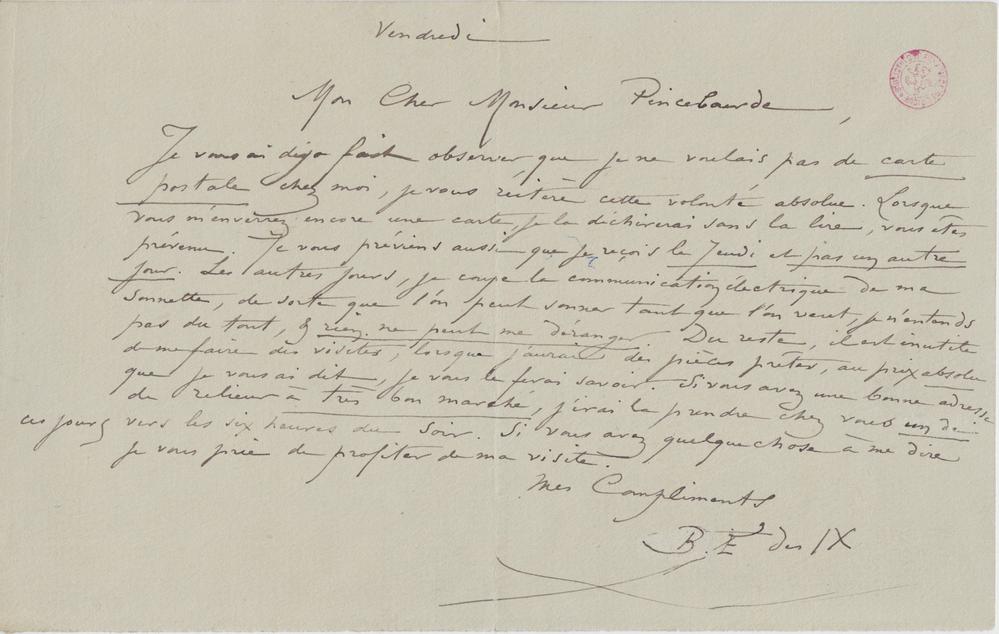 Vendredi
Mon Cher Monsieur Pincebourde,
Je vous ai déja fait observer que je ne voulais pas de carte
postale chez moi, je vous réitère cette volonté absolue. Lorsque
vous m'enverrez encore une carte, je la déchirerai sans la lire, vous êtes
prévenu. Je vous préviens aussi que je reçois le Jeudi et pas un autre
jour. Les autres jours, je coupe la communication électrique de ma
sonnette, de sorte que l'on peut sonner tant que l'on veut, je n'entends
pas du tout, & rien ne peut me déranger. Du reste, il est inutile
de me faire des visites, lorsque j'aurai des pièces prêtes, au prix absolu
que je vous ai dit, je vous le ferai savoir. Si vous avez une bonne adresse
de relieur à très bon marché, j'irai la prendre chez vous un de
ces jours vers les six heures du soir. Si vous avez quelque chose à me dire
je vous prie de profiter de ma visite.
Mes Compliments
B. E. des IX